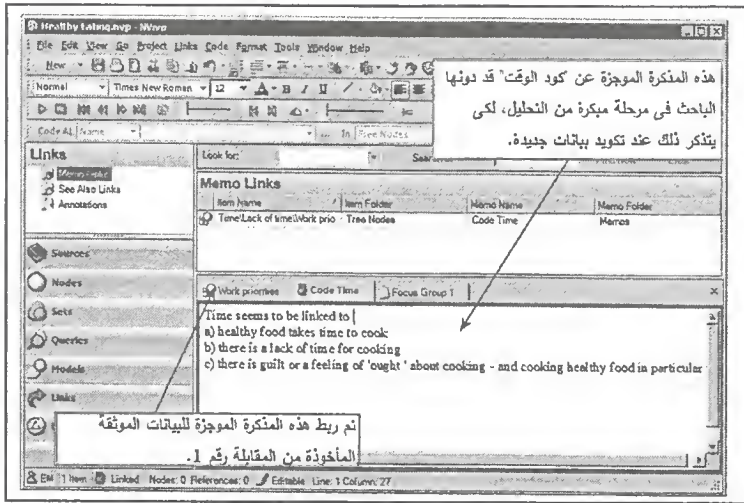 Healthy Eating.nvp - NVivo
File Edit View Go Project Links Code Format Tools Window Help
New
Normal Times New Roman 12 A B I U
Code At Name In Free Nodes
هذه المذكرة الموجزة عن "كود الوقت" قد دونها
الباحث فى مرحلة مبكرة من التحليل، لكى
يتذكر ذلك عند تكويد بيانات جديدة.
Links
Memo Links
See Also Links
Annotations
Look for:
Memo Links
Item Name Item Folder Memo Name Memo Folder
Time\Lack of time\Work prio Tree Nodes Code Time Memos
Sources
Nodes
Sets
Queries
Models
Links
Work priorities Code Time Focus Group 1
Time seems to be linked to
a) healthy food takes time to cook
b) there is a lack of time for cooking
c) there is guilt or a feeling of 'ought' about cooking - and cooking healthy food in particular
تم ربط هذه المذكرة الموجزة للبيانات الموثقة
المأخوذة من المقابلة رقم 1.
EM 1 Item Linked Nodes: 0 References: 0 Editable Line: 1 Column: 27